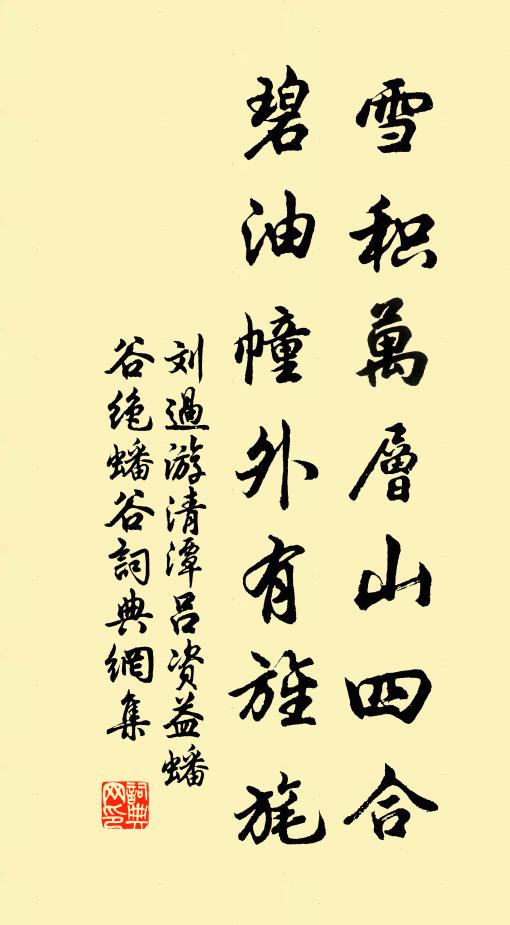 雪积萬層山四合
碧油幢外有旌旄
刘過游清潭吕资益蟠
谷绝蟠谷詞典網集
詞典
网印